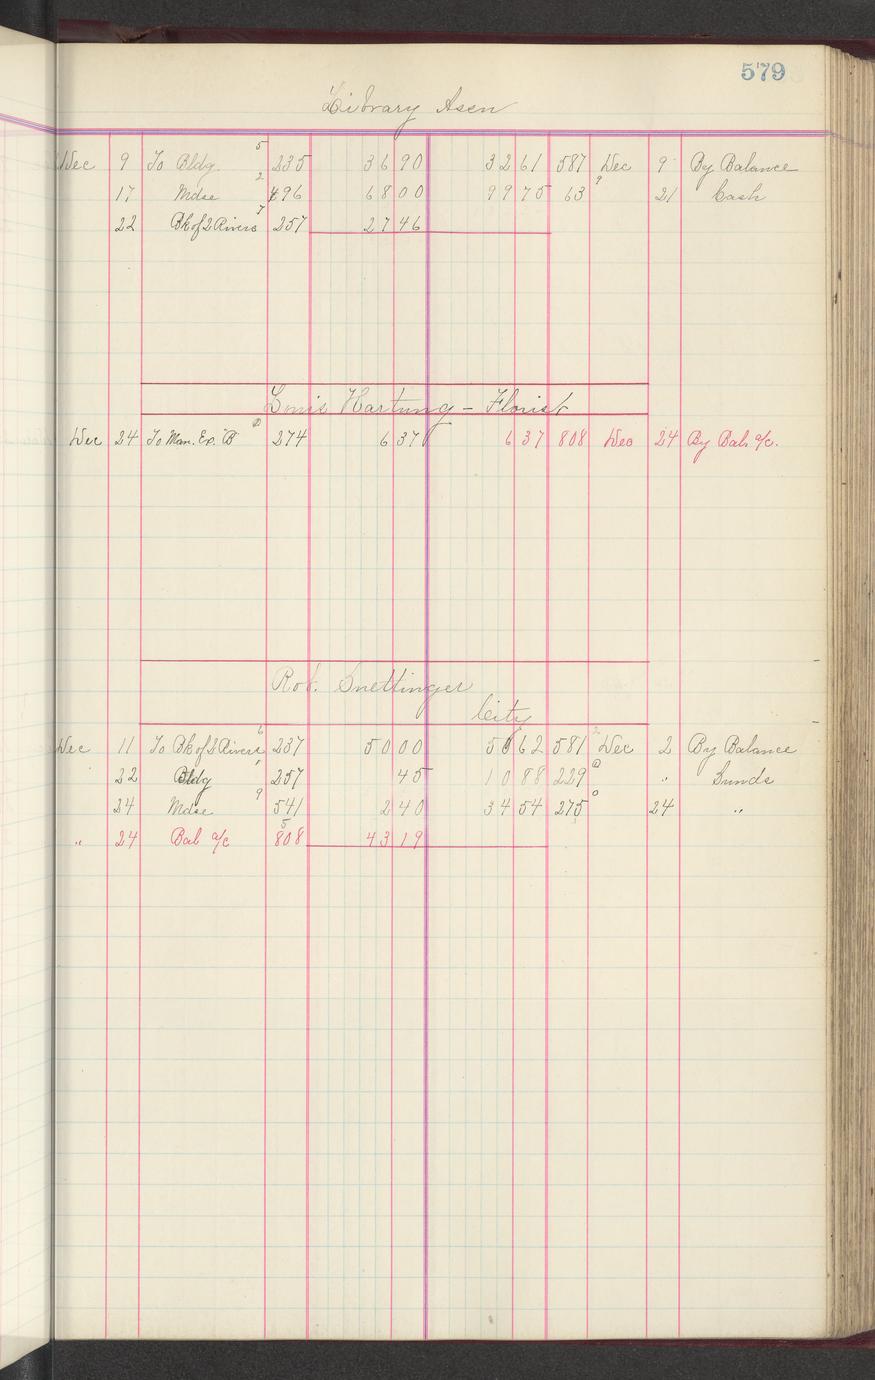 579
Library Assn
Dec 9 To Bldg. 5 235 36 90 32 61 587 Dec 9 By Balance
17 Mdse 2 496 68 00 99 75 63 9 21 Cash
22 Bk of 2 Rivers 7 257 27 46
Louis Hartung - Florist
Dec 24 To Man. Ex. B 0 274 6 37 6 37 808 Dec 24 By Bal. a/c.
Rob. Snettinger
City
Dec 11 To Bk of 2 Rivers 6 237 50 00 50 62 581 2 Dec 2 By Balance
22 Bldg 1 257 45 10 88 229 0 " Sunds
24 Mdse 9 541 2 40 34 54 275 0 24 "
" 24 Bal a/c 5 808 43 19